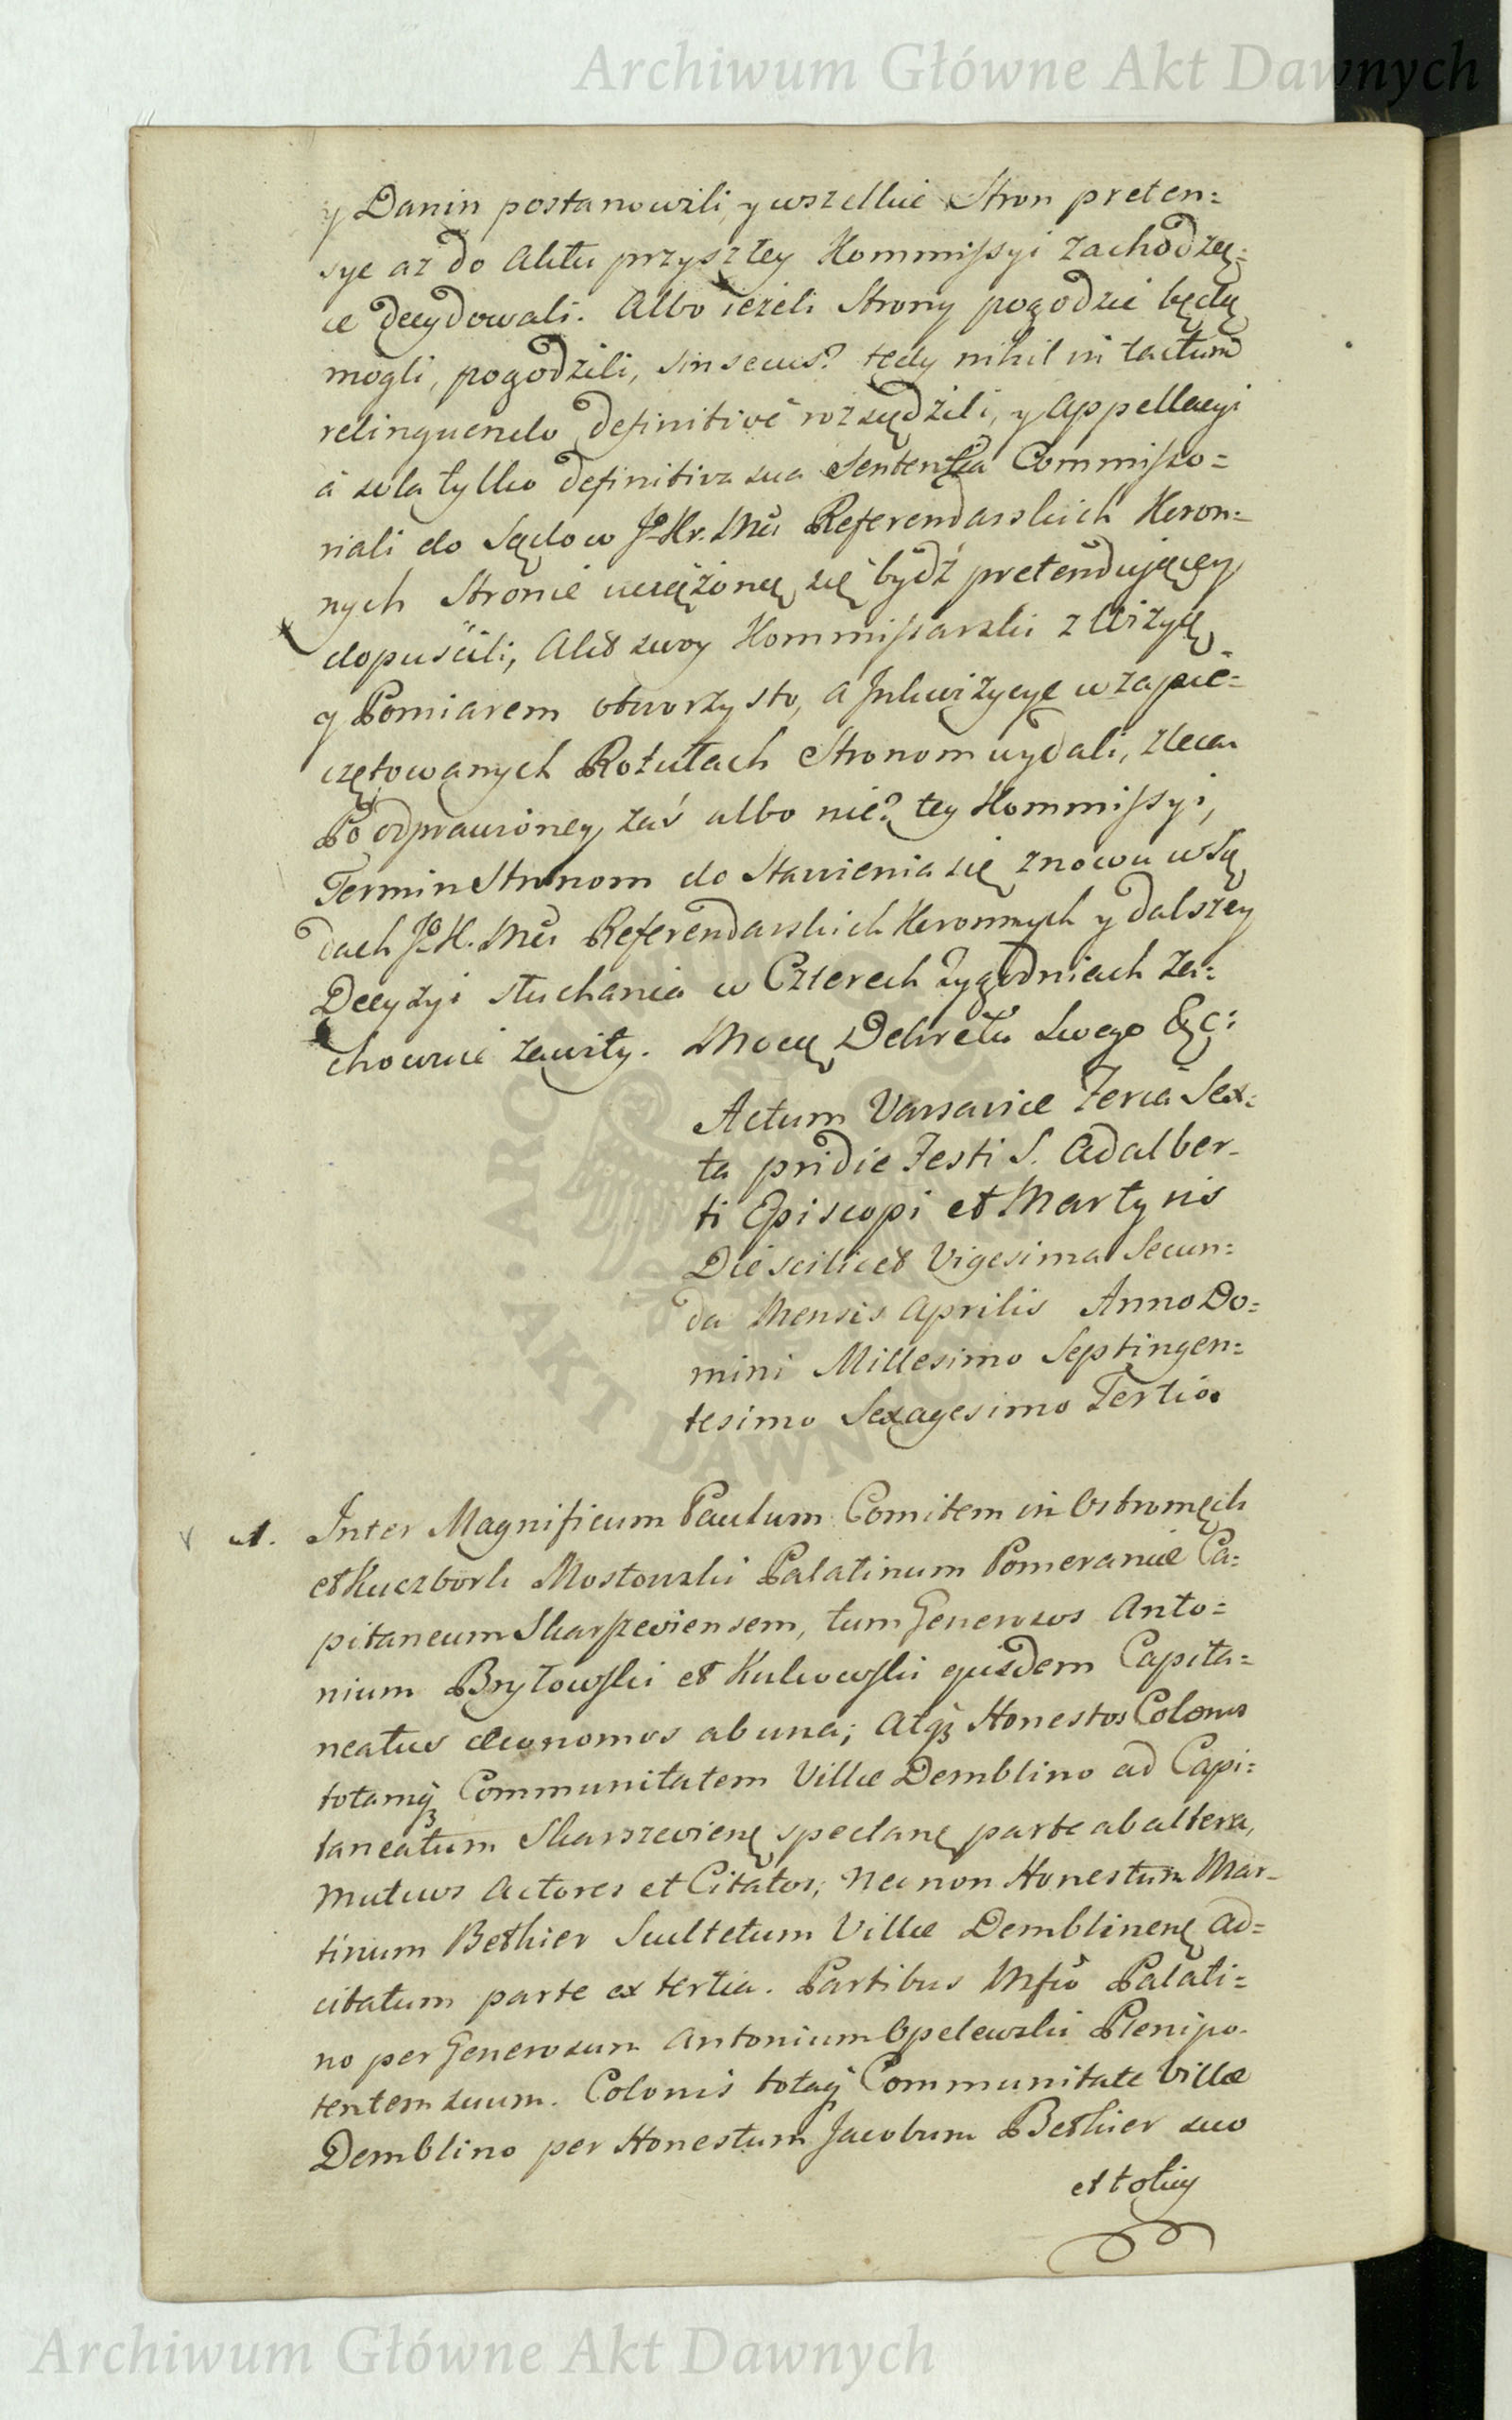 Archiwum Główne Akt Dawnych
y Danin postanowili, y wszelkie Stron preten=
sye az do Aktu przyszłey Kommissyi zachodzą=
ce decydowali. Albo ieżeli Strony pogodzić będą
mogli, pogodzili, sin secus? tedy nihil in tactum
relinquendo definitivè rozsądzili, y Appellacyi
à sola tylko definitiva sua Sententia Commisso=
riali do Sądow J. Kr. Mci Referendarskich Koron=
nych Stronie uciążoną się bydź pretendującey
dopuścili, Akt swoy Kommissarski z Wizyą
y Pomiarem otworzysto, a Inkwizycye w zapie=
czętowanych Rotułach Stronom wydali, zleca
Po odprawioney zaś albo nie? tey Kommissyi,
Termin Stronom do Stawienia się znowu w Są
dach J. K. Mci Referendarskich Koronnych y dalszey
Decyzyi słuchania w Czterech Tygodniach za=
chownie zawity. Mocą Dekretu Swego &c:
Actum Varsaviæ Feria Sex=
ta pridie Festi S. Adalber-
ti Episcopi et Martyris
Die scilicet Vigesima Secun=
da Mensis Aprilis Anno Do=
mini Millesimo Septingen=
tesimo Sexagesimo Tertio.
1. Inter Magnificum Paulum Comitem in Ostromęch
et Kuczbork Mostowski Palatinum Pomeraniæ Ca=
pitaneum Skarszeviensem, tum Generosos Anto=
nium Brytowski et Kukowski ejusdem Capita=
neatus Œconomos ab una; atq3 Honestos Colonos
totamq3 Communitatem Villæ Demblino ad Capi=
taneatum Skarszevienę spectanę parte ab altera,
mutuos Actores et Citatos; Nec non Honestum Mar=
tinum Bethier Scultetum Villæ Demblinenę ad=
citatum parte ex tertia. Partibus Mfco Palati=
no per Generosum Antonium Opelewski Plenipo-
tentem suum. Colonis totaq3 Communitate Villæ
Demblino per Honestum Jacobum Bethier suo
et totiq3
Archiwum Główne Akt Dawnych